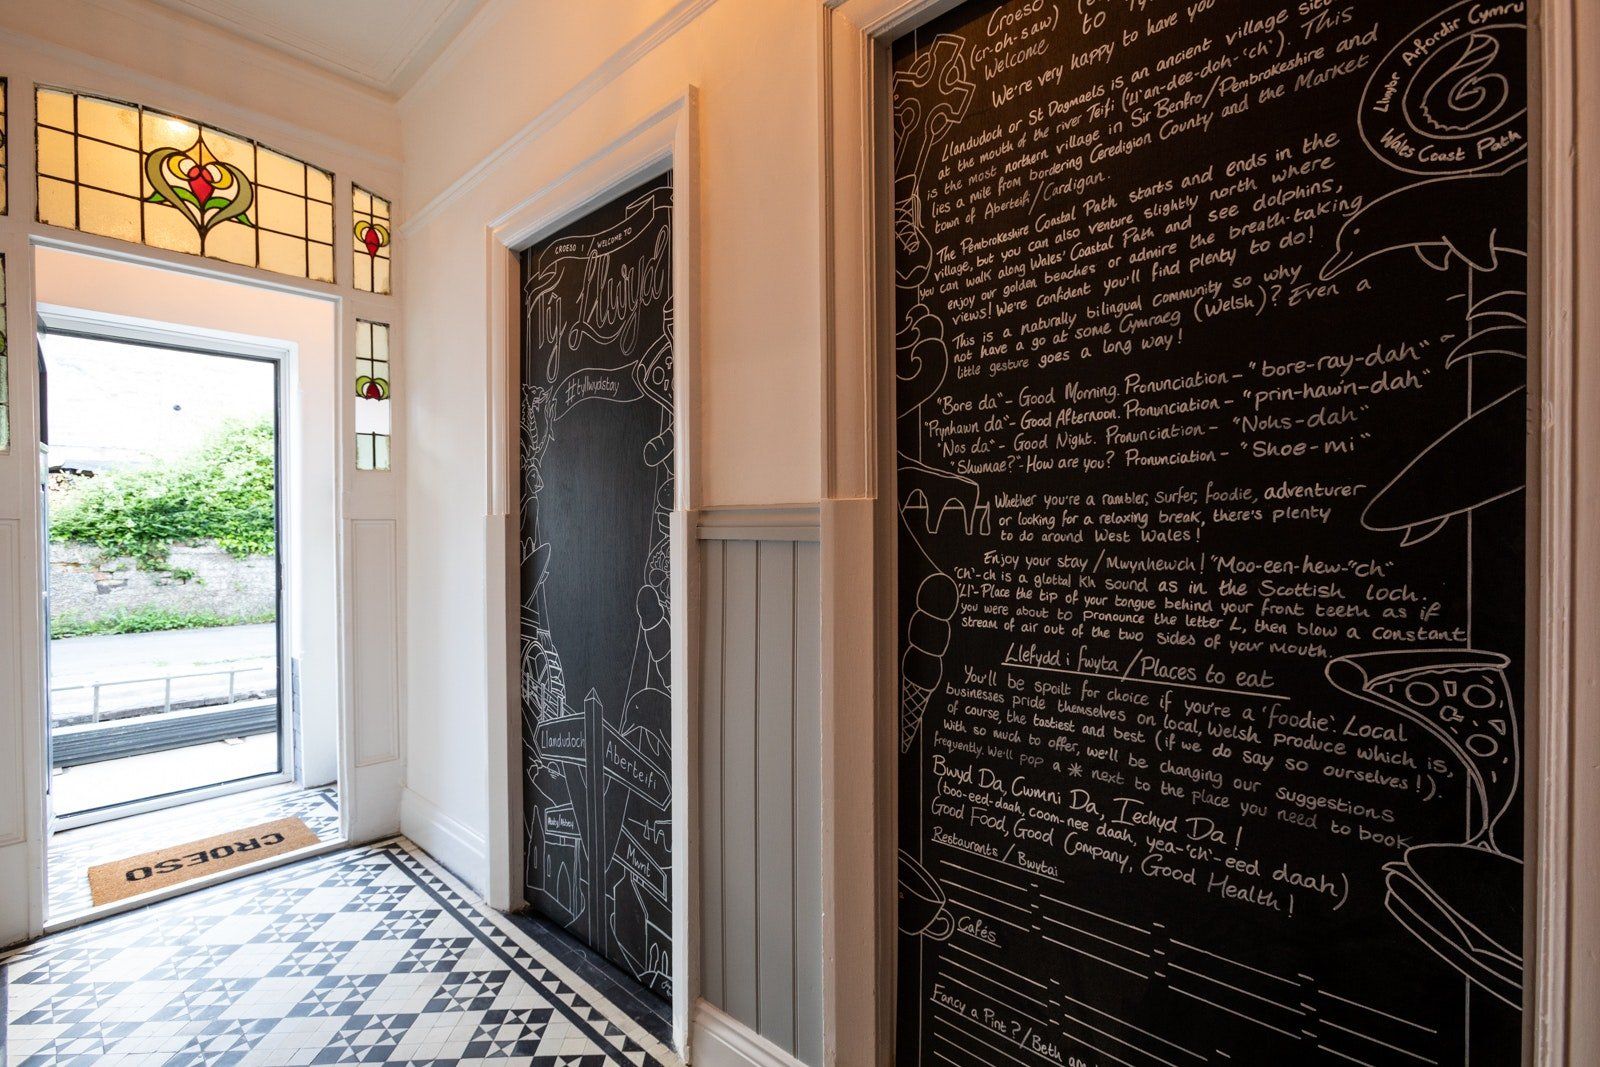 CROESO
CROESO | WELCOME TO
Tŷ Llwyd
#tyllwydstay
Llandudoch
Aberteifi
Mwnt
Croeso
(cr-oh-saw)
Welcome to
We're very happy to have you
Llandudoch or St Dogmaels is an ancient village
at the mouth of the river Teifi ('Ll'an-dee-doh-'ch'). This
is the most northern village in Sir Benfro/Pembrokeshire and
lies a mile from bordering Ceredigion County and the Market
town of Aberteifi/Cardigan.
Llwybr Arfordir Cymru
Wales Coast Path
The Pembrokeshire Coastal Path starts and ends in the
village, but you can also venture slightly north where
you can walk along Wales' Coastal Path and see dolphins,
enjoy our golden beaches or admire the breath-taking
views! We're confident you'll find plenty to do!
This is a naturally bilingual community so why
not have a go at some Cymraeg (Welsh)? Even a
little gesture goes a long way!
"Bore da" - Good Morning. Pronunciation - "bore-ray-dah"
"Prynhawn da" - Good Afternoon. Pronunciation - "prin-hawn-dah"
"Nos da" - Good Night. Pronunciation - "Nohs-dah"
"Shwmae?" - How are you? Pronunciation - "Shoe-mi"
Whether you're a rambler, surfer, foodie, adventurer
or looking for a relaxing break, there's plenty
to do around West Wales!
Enjoy your stay / Mwynhewch! "Moo-een-hew-"ch"
'Ch'-ch is a glottal Kh sound as in the Scottish loch.
'Ll'- Place the tip of your tongue behind your front teeth as if
you were about to pronounce the letter L, then blow a constant
stream of air out of the two sides of your mouth.
Llefydd i fwyta / Places to eat
You'll be spoilt for choice if you're a 'foodie'. Local
businesses pride themselves on local, Welsh produce which is,
of course, the tastiest and best (if we do say so ourselves!).
With so much to offer, we'll be changing our suggestions
frequently. We'll pop a * next to the place you need to book
Bwyd Da, Cwmni Da, Iechyd Da!
(boo-eed-daah, coom-nee daah, yea-'ch'-eed daah)
Good Food, Good Company, Good Health!
Restaurants / Bwytai
Cafés
Fancy a Pint? / Beth am